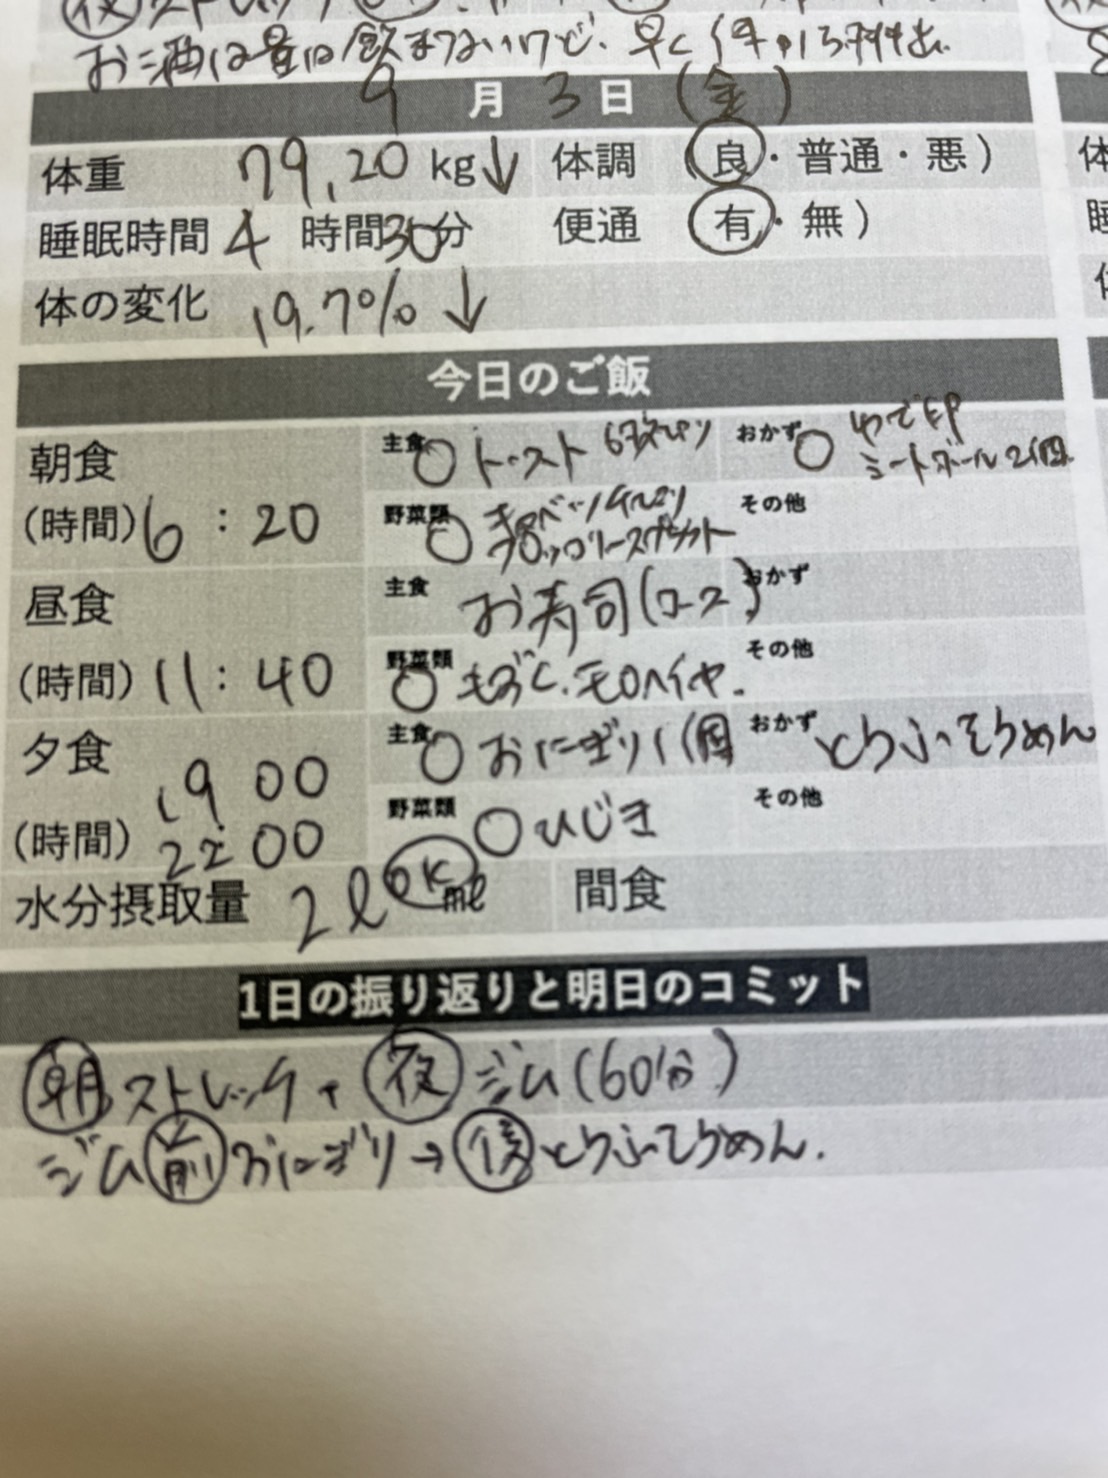 お酒は量は飲まないけど、早く
9月3日(金)
体重 79.20kg↓ 体調 (良・普通・悪)
睡眠時間 4時間30分 便通 (有・無)
体の変化 19.7% ↓
今日のご飯
朝食 主食 ○ トースト 6枚切り おかず ○ ゆで卵
ミートボール2個
(時間) 6:20 野菜類 ○ キャベツ
ブロッコリースプラウト その他
昼食 主食 お寿司 おかず
(時間) 11:40 野菜類 ○ もずく、モロヘイヤ. その他
夕食 19 00 主食 ○ おにぎり1個 おかず とうふそうめん
(時間) 22:00 野菜類 ○ ひじき その他
水分摂取量 2ℓ OK ml 間食
1日の振り返りと明日のコミット
朝 ストレッチ、夜 ジム(60分)
ジム前おにぎり→後とうふそうめん.